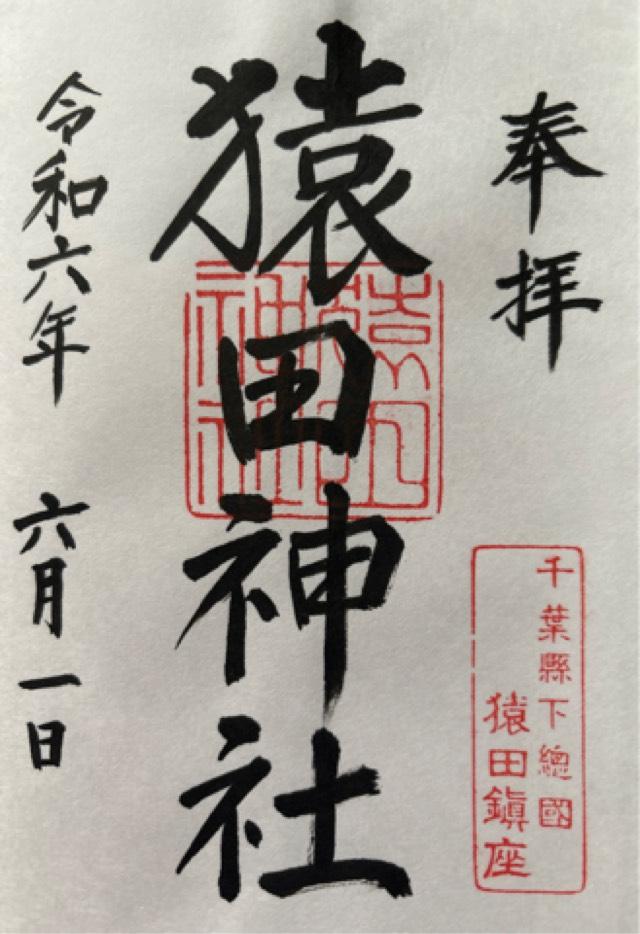 奉拝
千葉縣下總國
猿田鎭座
猿田神社
令和六年 六月一日